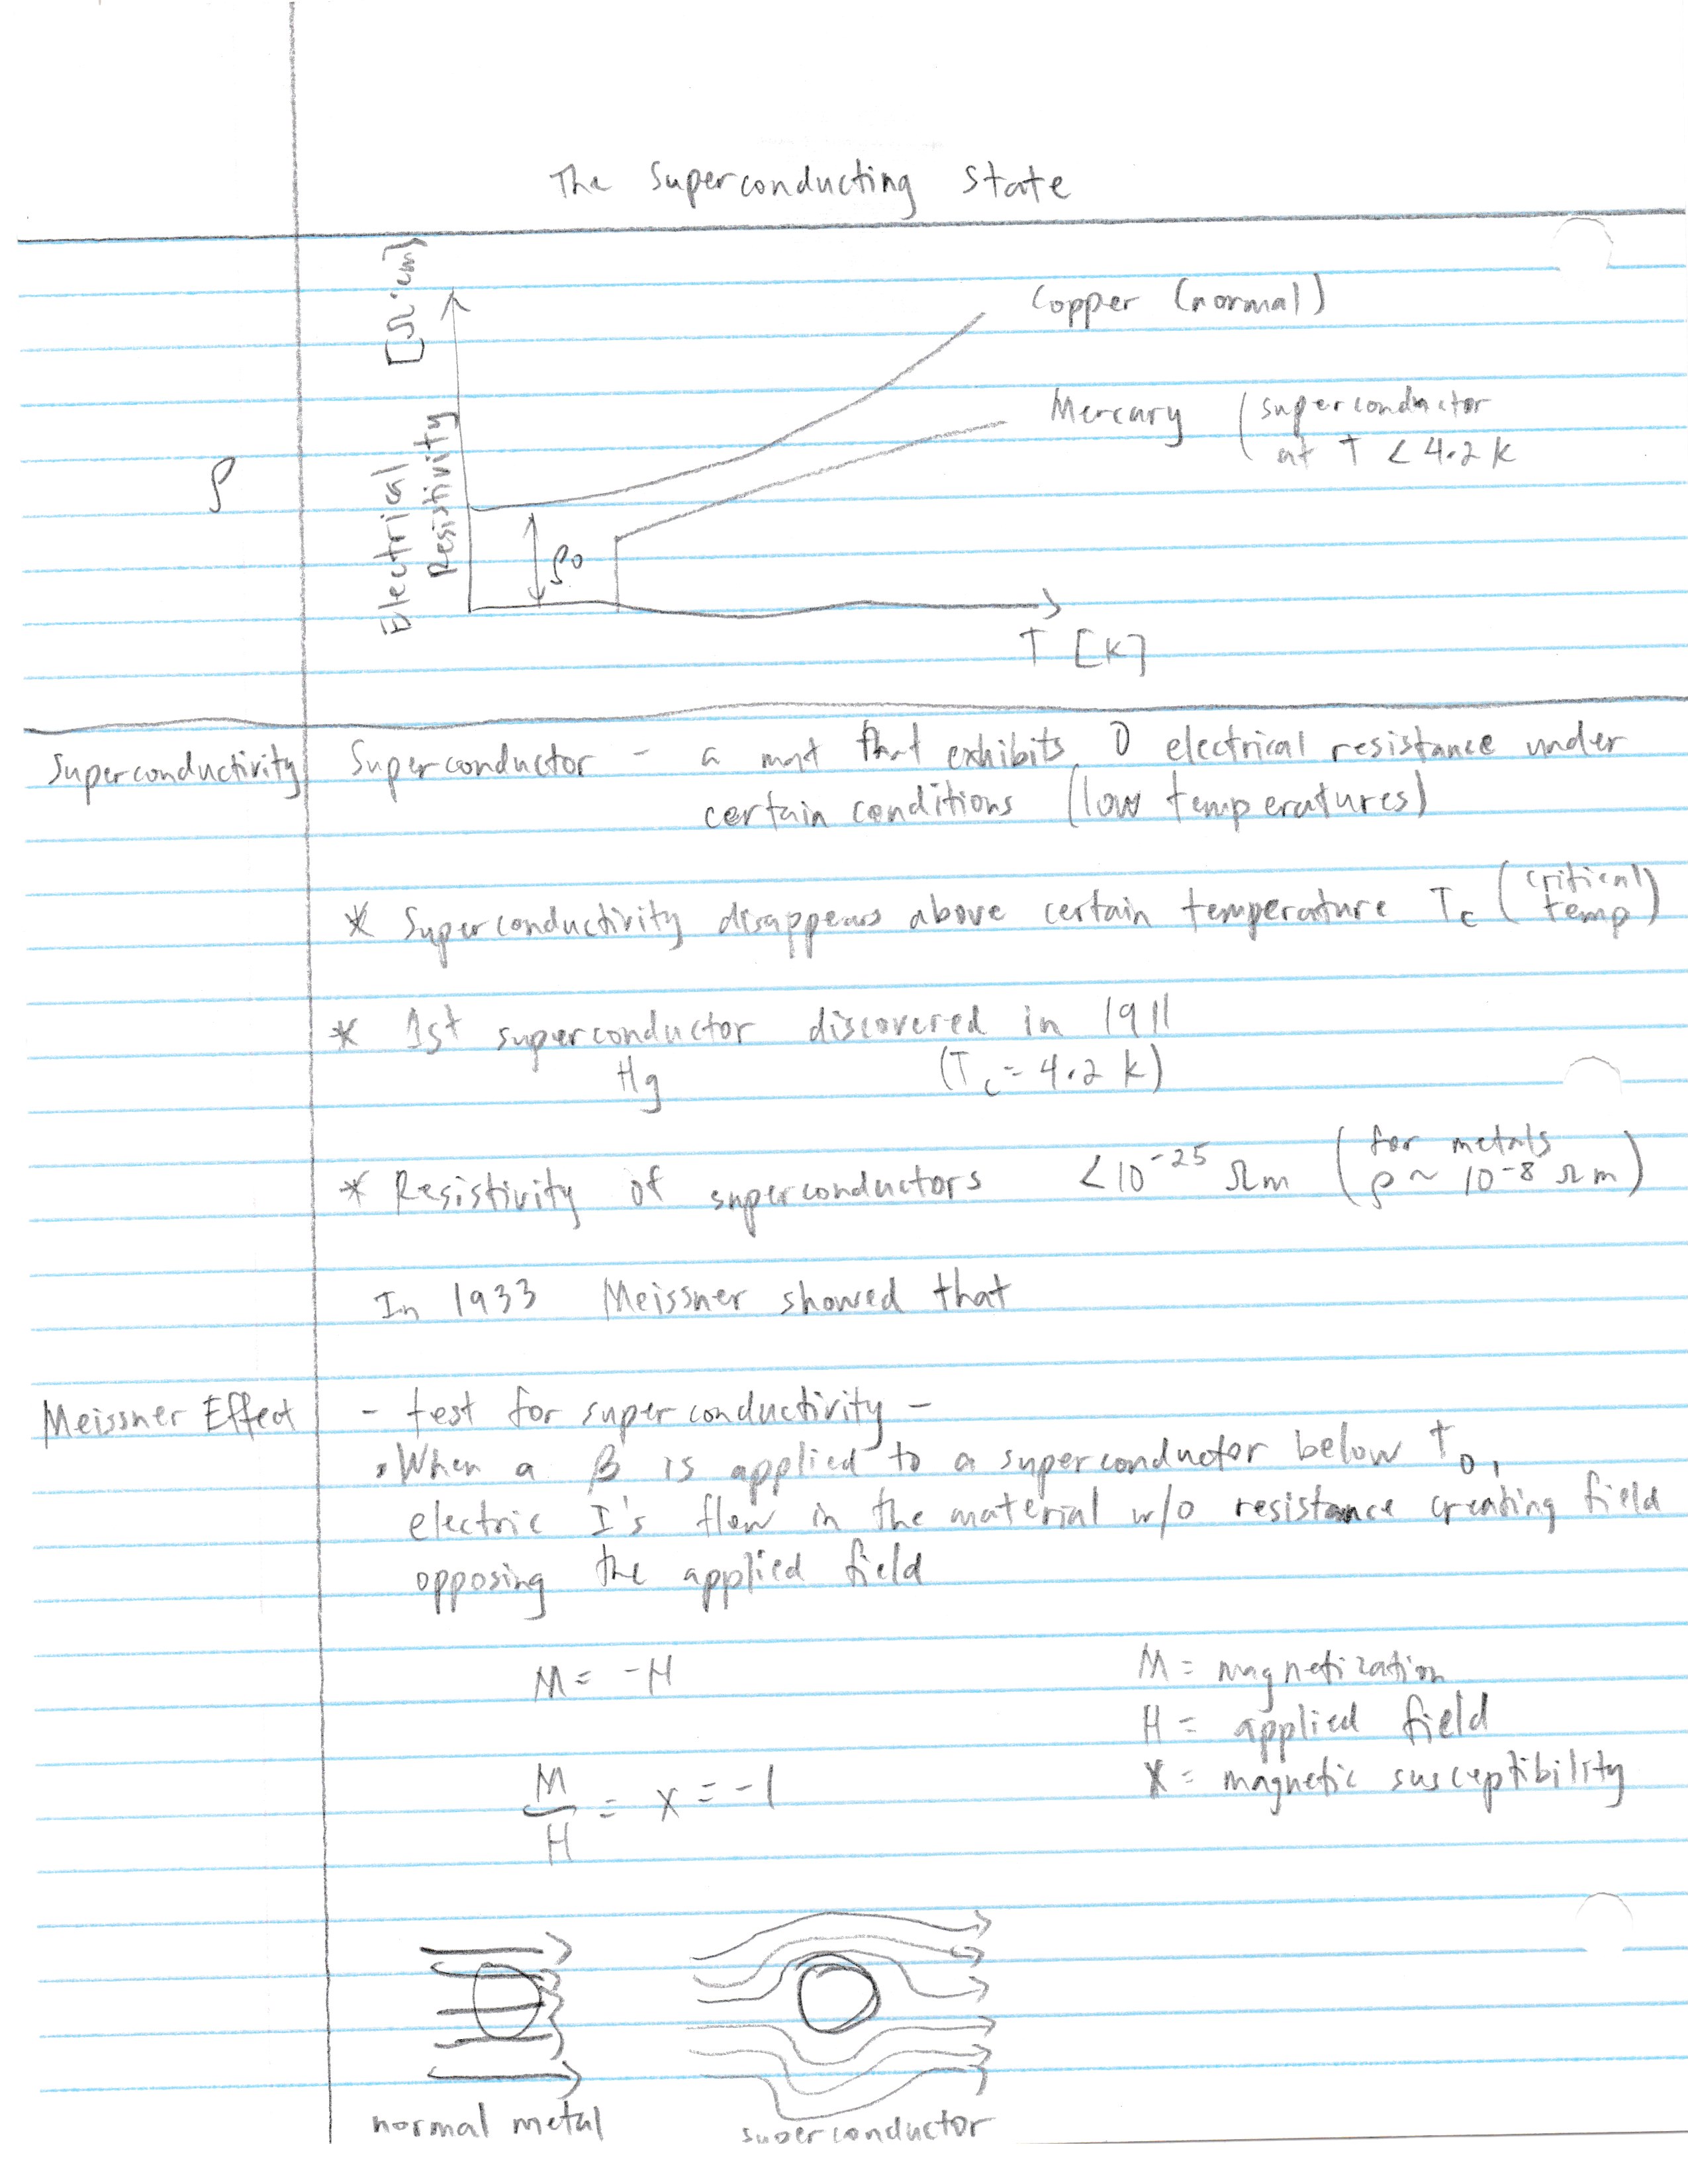 The Superconducting State
Electrical Resistivity [Ω·cm]
Copper (normal)
Mercury (superconductor
at T < 4.2 K
ρ
ρ0
T [K]
Superconductivity
Superconductor - a mat that exhibits 0 electrical resistance under
certain conditions (low temperatures)
* Superconductivity disappears above certain temperature Tc (critical temp)
* 1st superconductor discovered in 1911
Hg (Tc = 4.2 K)
* Resistivity of superconductors < 10^-25 Ωm (for metals ρ ~ 10^-8 Ωm)
In 1933 Meissner showed that
Meissner Effect
- test for superconductivity -
. When a B is applied to a superconductor below T0,
electric I's flow in the material w/o resistance creating field
opposing the applied field
M = -H
M = magnetization
H = applied field
M/H = χ = -1
χ = magnetic susceptibility
normal metal
superconductor